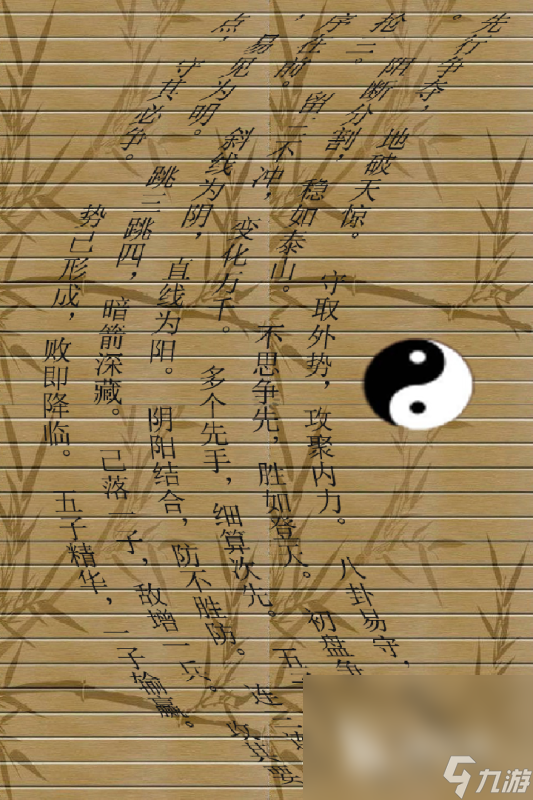 先行争夺，地破天惊。守取外势，攻聚内力。八卦易守，
。阻断分割，稳如泰山。不思争先，胜如登天。初盘争
抢三。留三不冲，变化万千。多个先手，细算次先。五
序在前。斜线为阴，直线为阳。阴阳结合，防不胜防。连三
，易见为明。跳三跳四，暗箭深藏。己落一子，敌增一兵。攻其要
点，守其必争。势己形成，败即降临。五子精华，一子输赢。
九游